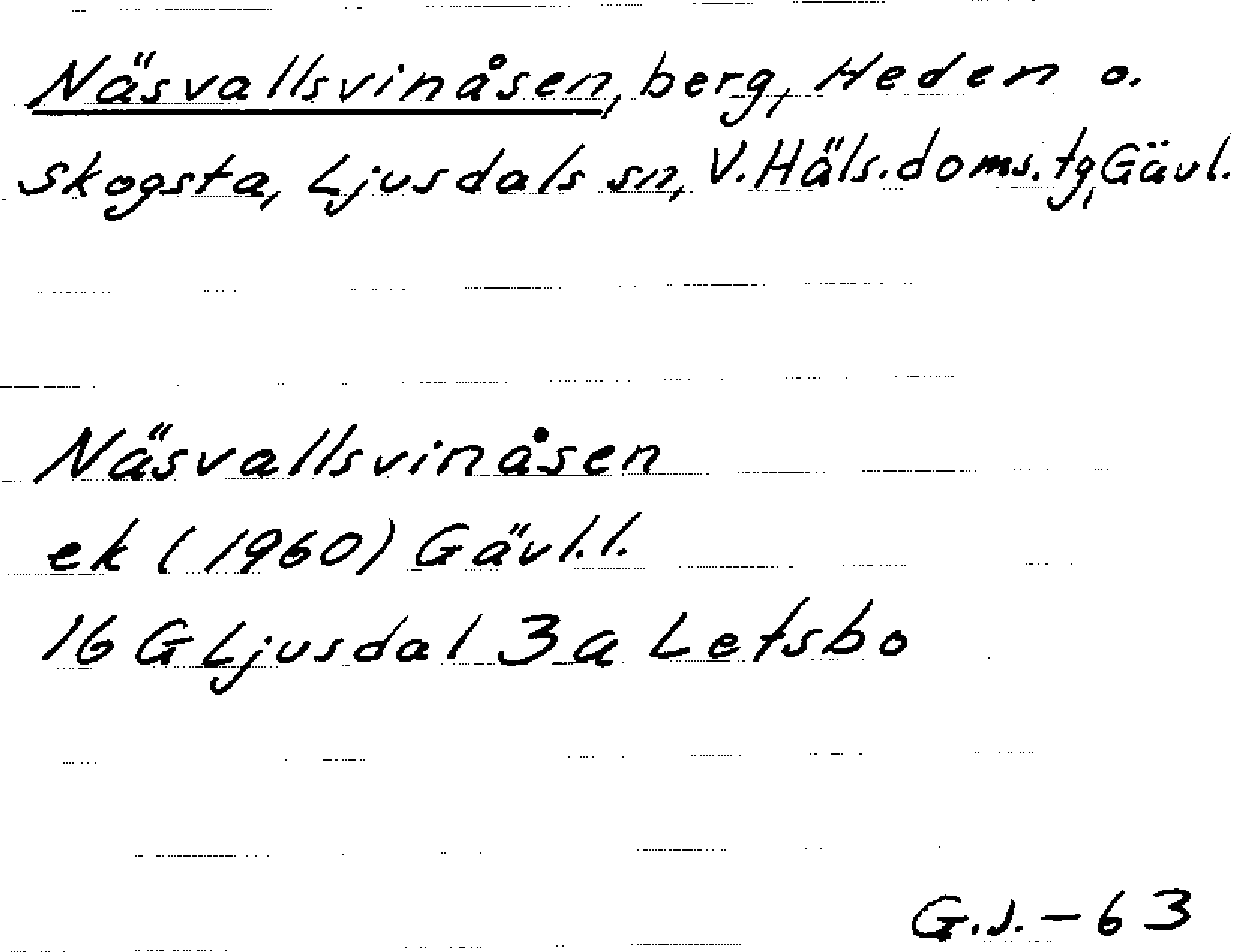 Näsvallsvinåsen, berg, Heden o.
Skogsta, Ljusdals sn, V. Häls. doms. tg, Gävl.
Näsvallsvinåsen
ek (1960) Gävl. l.
16 G Ljusdal 3 a Letsbo
G.J. – 63